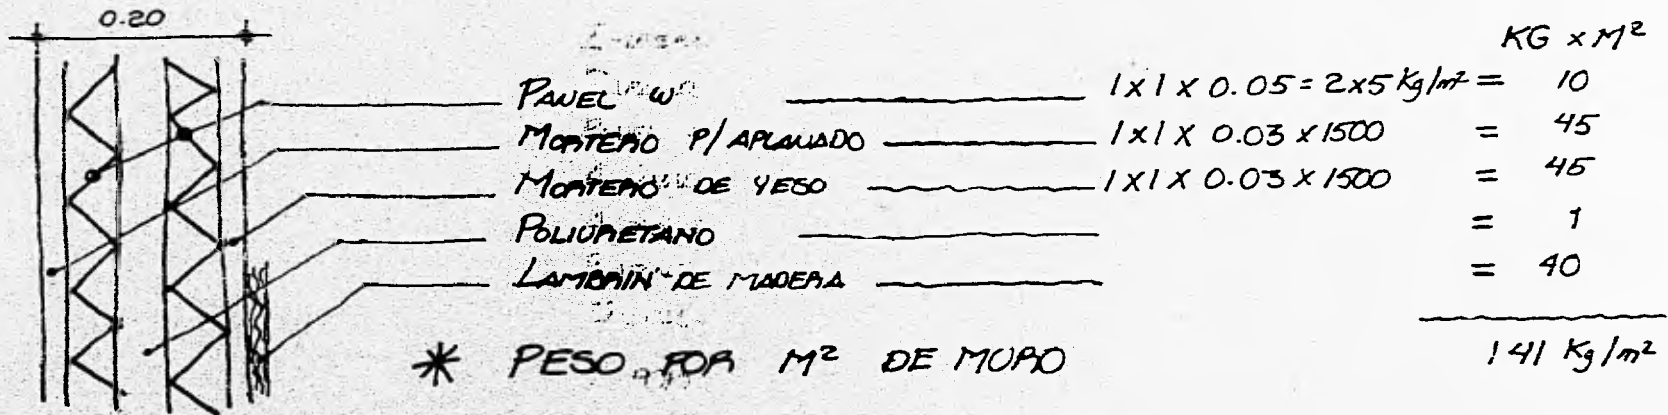 0.20
KG x M²
PANEL W 1 x 1 x 0.05 = 2x5 Kg/m² = 10
MORTERO P/ APLANADO 1 x 1 x 0.03 x 1500 = 45
MORTERO DE YESO 1 x 1 x 0.03 x 1500 = 45
POLIURETANO = 1
LAMBRIN DE MADERA = 40
* PESO POR M² DE MURO 141 Kg/m²